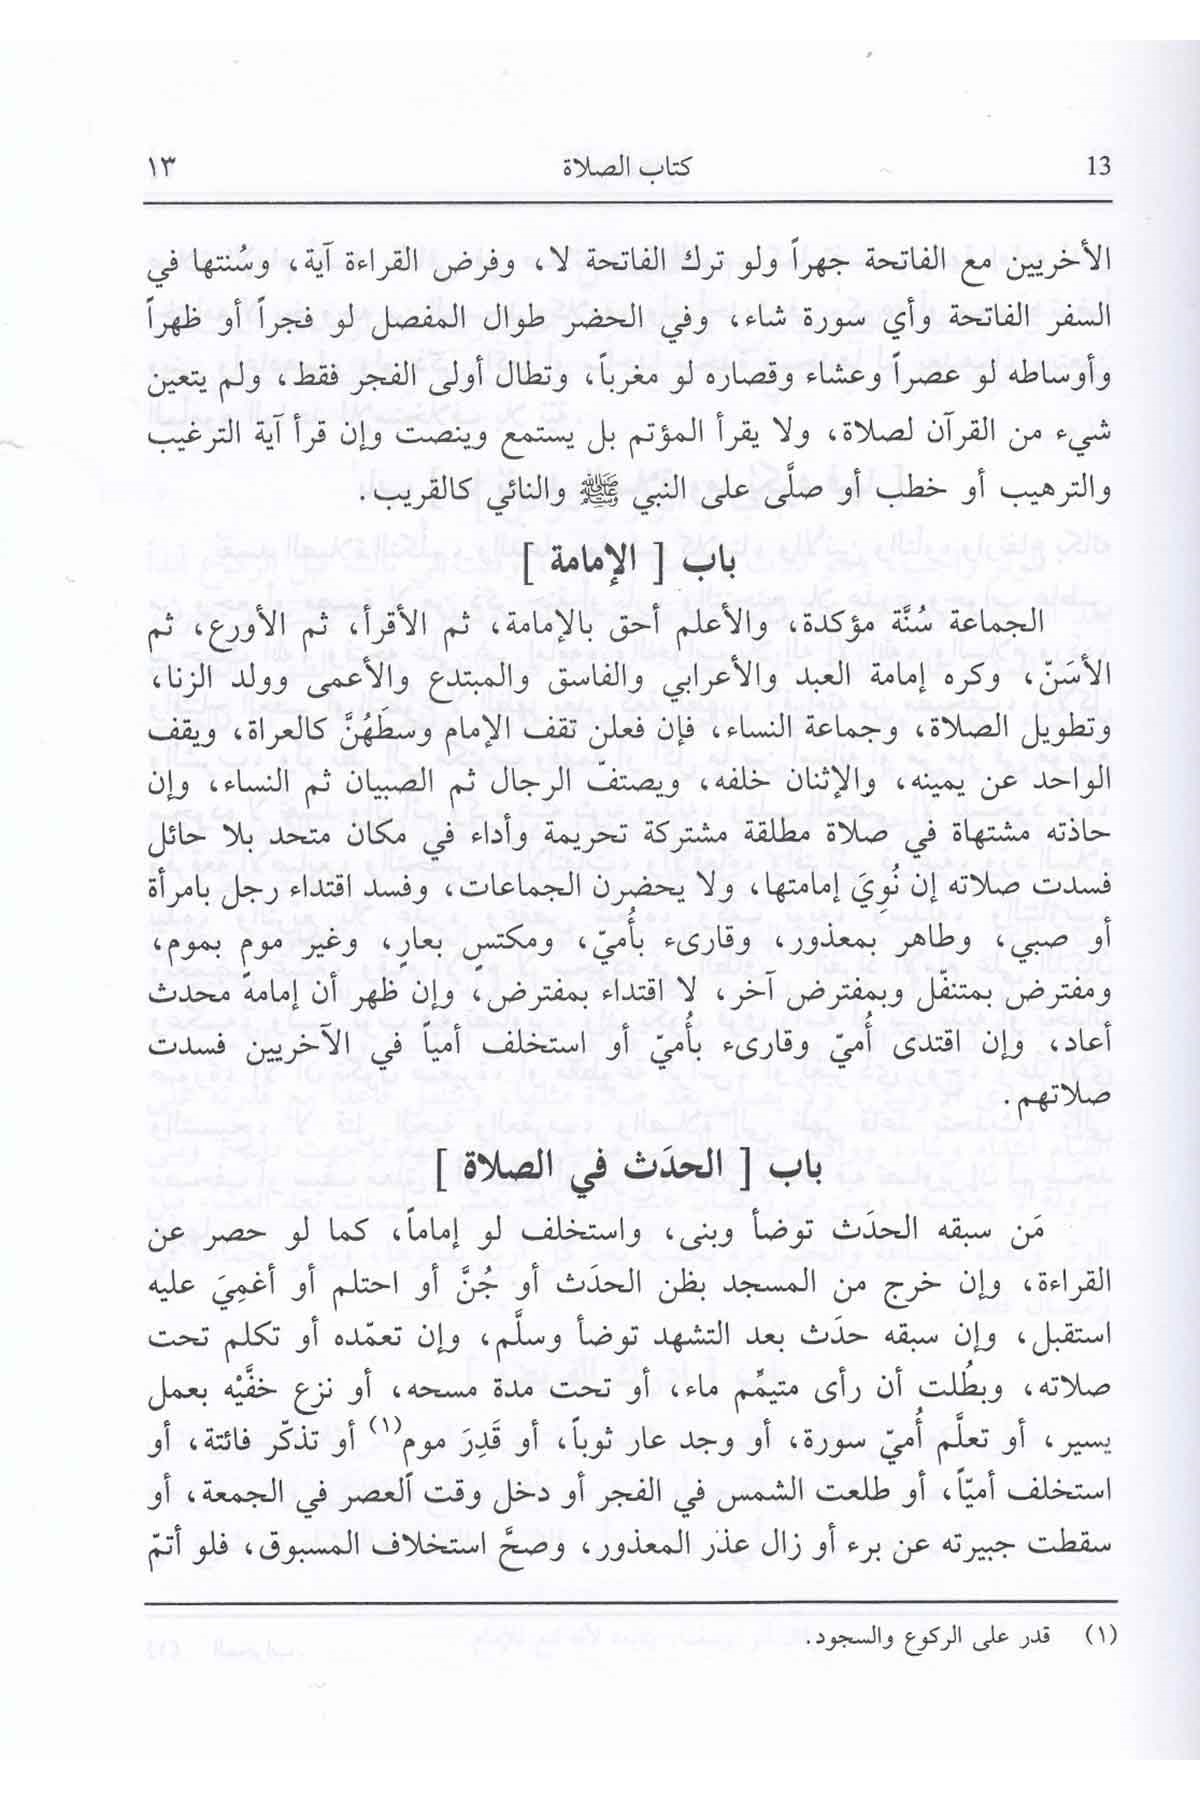 13 كتاب الصلاة ١٣
الأخريين مع الفاتحة جهراً ولو ترك الفاتحة لا، وفرض القراءة آية، وسُنتها في
السفر الفاتحة وأي سورة شاء، وفي الحضر طوال المفصل لو فجراً أو ظهراً
وأوساطه لو عصراً وعشاء وقصاره لو مغرباً، وتطال أولى الفجر فقط، ولم يتعين
شيء من القرآن لصلاة، ولا يقرأ المؤتم بل يستمع وينصت وإن قرأ آية الترغيب
والترهيب أو خطب أو صلَّى على النبي ﷺ والنائي كالقريب.
باب [ الإمامة ]
الجماعة سُنَّة مؤكدة، والأعلم أحق بالإمامة، ثم الأقرأ، ثم الأورع، ثم
الأسَنّ، وكره إمامة العبد والأعرابي والفاسق والمبتدع والأعمى وولد الزنا،
وتطويل الصلاة، وجماعة النساء، فإن فعلن تقف الإمام وسطَهُنَّ كالعراة، ويقف
الواحد عن يمينه، والإثنان خلفه، ويصتفّ الرجال ثم الصبيان ثم النساء، وإن
حاذته مشتهاة في صلاة مطلقة مشتركة تحريمة وأداء في مكان متحد بلا حائل
فسدت صلاته إن نُوِيَ إمامتها، ولا يحضرن الجماعات، وفسد اقتداء رجل بامرأة
أو صبي، وطاهر بمعذور، وقارىء بأُميّ، ومكتسٍ بعارٍ، وغير مومٍ بموم،
ومفترض بمتنفّل وبمفترض آخر، لا اقتداء بمفترض، وإن ظهر أن إمامه محدث
أعاد، وإن اقتدى أُميّ وقارىء بأُميّ أو استخلف أمياً في الآخريين فسدت
صلاتهم.
باب [ الحدَث في الصلاة ]
مَن سبقه الحدَث توضأ وبنى، واستخلف لو إماماً، كما لو حصر عن
القراءة، وإن خرج من المسجد بظن الحدَث أو جُنَّ أو احتلم أو أغمِيَ عليه
استقبل، وإن سبقه حدَث بعد التشهد توضأ وسلَّم، وإن تعمّده أو تكلم تحت
صلاته، وبطُلت أن رأى متيمِّم ماء، أو تحت مدة مسحه، أو نزع خفَّيْه بعمل
يسير، أو تعلَّم أُميّ سورة، أو وجد عار ثوباً، أو قَدِرَ موم(١) أو تذكّر فائتة، أو
استخلف أميّاً، أو طلعت الشمس في الفجر أو دخل وقت العصر في الجمعة، أو
سقطت جبيرته عن برء أو زال عذر المعذور، وصحَّ استخلاف المسبوق، فلو أتمّ
(١) قدر على الركوع والسجود.